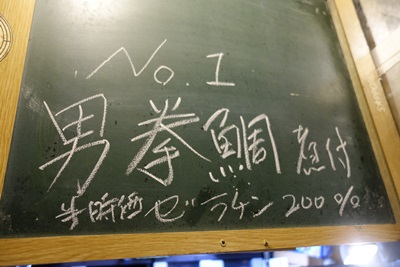 No.1
男拳鯛 煮付
半時煙 ゼラチン 200%